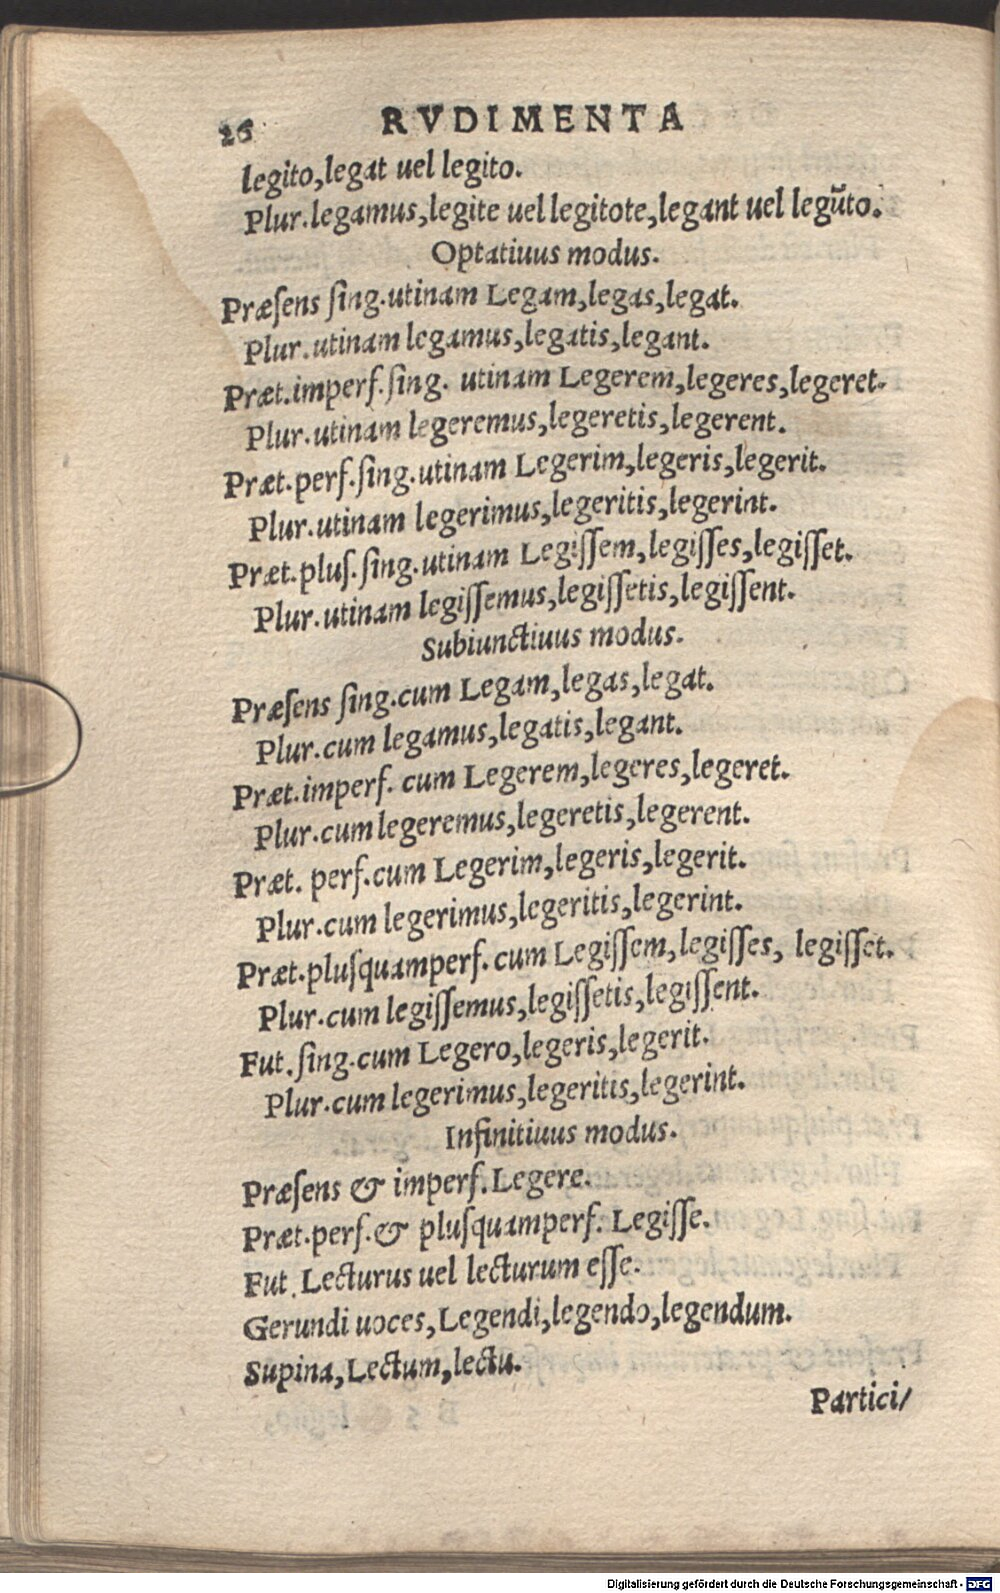 26 RVDIMENTA
legito,legat uel legito.
Plur.legamus,legite uel legitote,legant uel legũto.
Optatiuus modus.
Præſens ſing.utinam Legam,legas,legat.
Plur.utinam legamus,legatis,legant.
Præt.imperf.ſing. utinam Legerem,legeres,legeret.
Plur.utinam legeremus,legeretis,legerent.
Præt.perf.ſing.utinam Legerim,legeris,legerit.
Plur.utinam legerimus,legeritis,legerint.
Præt.pluſ.ſing.utinam Legiſſem,legiſſes,legiſſet.
Plur.utinam legiſſemus,legiſſetis,legiſſent.
Subiunctiuus modus.
Præſens ſing.cum Legam,legas,legat.
Plur.cum legamus,legatis,legant.
Præt.imperf. cum Legerem,legeres,legeret.
Plur.cum legeremus,legeretis,legerent.
Præt. perf.cum Legerim,legeris,legerit.
Plur.cum legerimus,legeritis,legerint.
Præt.pluſquamperf.cum Legiſſem,legiſſes, legiſſet.
Plur.cum legiſſemus,legiſſetis,legiſſent.
Fut.ſing.cum Legero,legeris,legerit.
Plur.cum legerimus,legeritis,legerint.
Infinitiuus modus.
Præſens & imperf.Legere.
Præt.perf.& pluſquamperf. Legiſſe.
Fut. Lecturus uel lecturum eſſe.
Gerundi uoces,Legendi,legendo,legendum.
Supina,Lectum,lectu.
Partici/
Digitalisierung gefördert durch die Deutsche Forschungsgemeinschaft - DFG